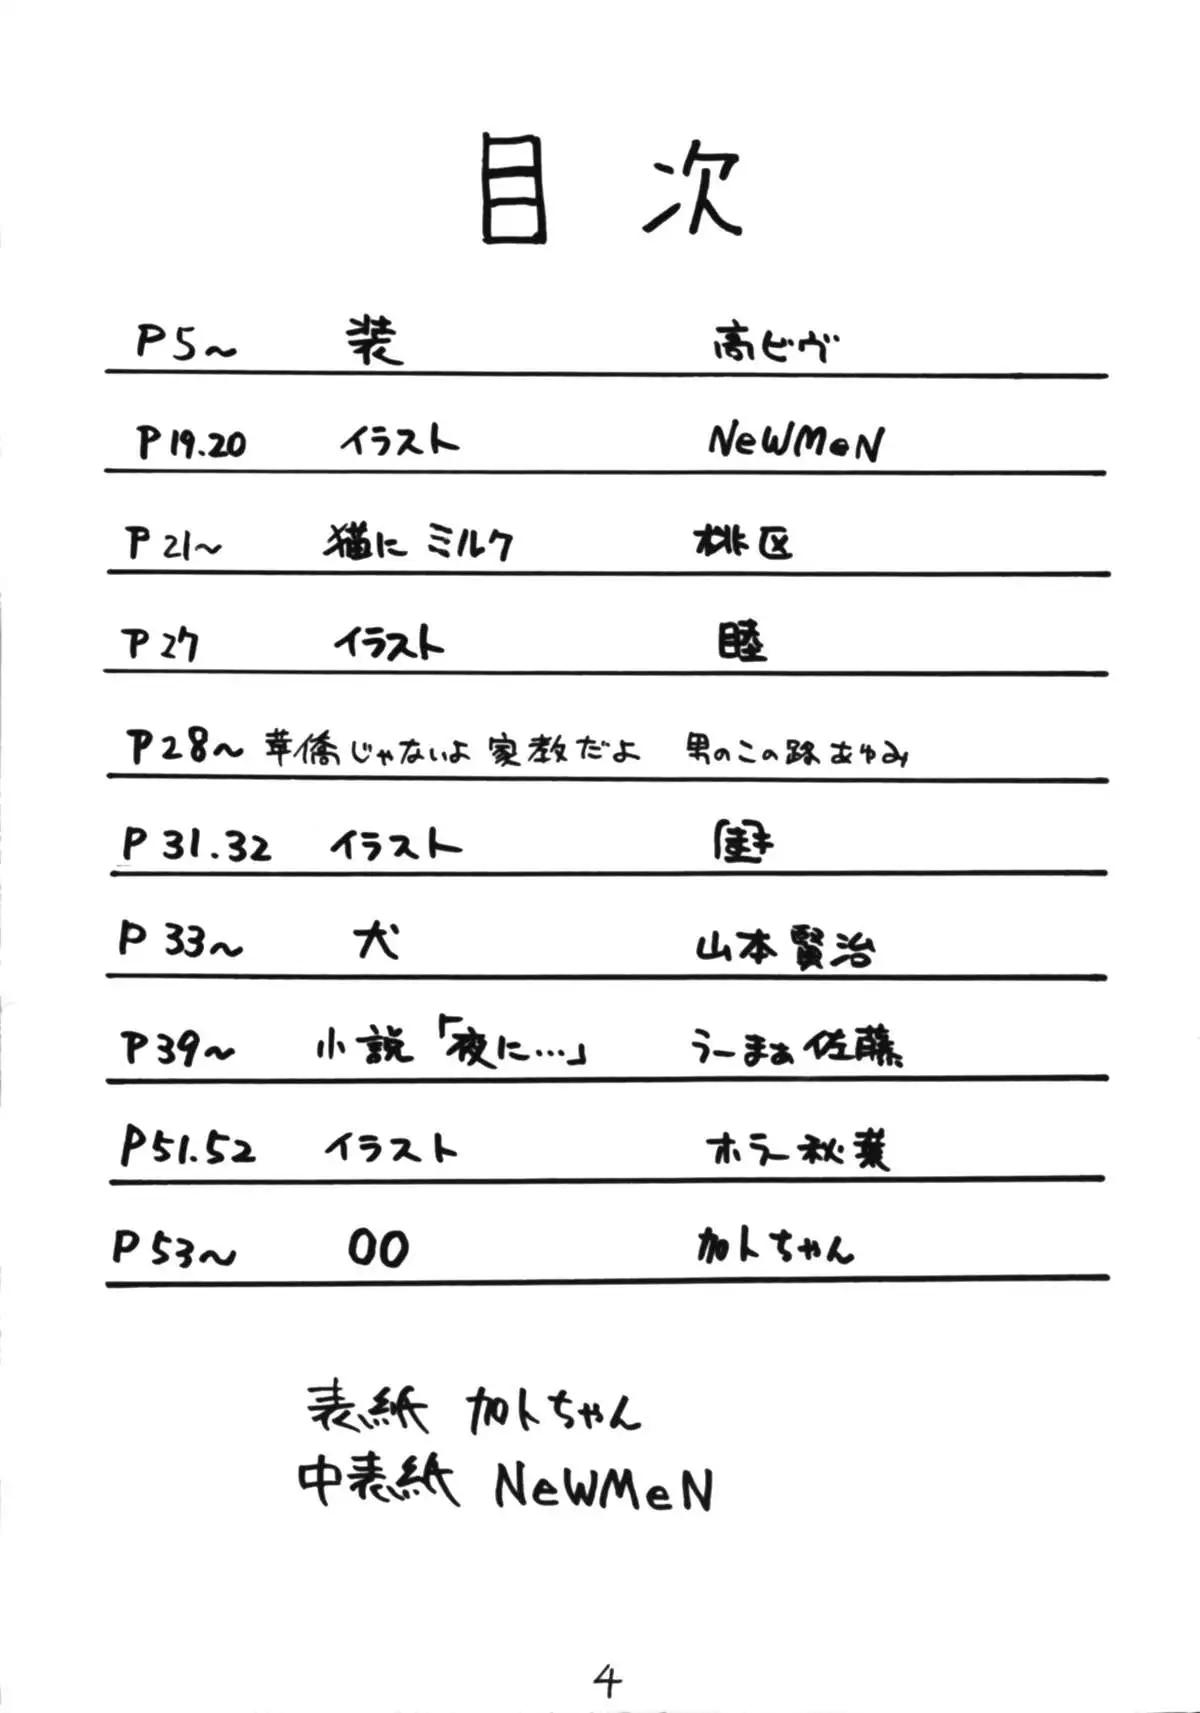 目次
P5〜 装 高ビヴ
P19.20 イラスト NeWMeN
P21〜 猫にミルク 桃区
P27 イラスト 睦
P28〜 華僑じゃないよ家教だよ 男のこの路あゆみ
P31.32 イラスト
P33〜 犬 山本賢治
P39〜 小説「夜に…」 うーまぁ佐藤
P51.52 イラスト ホラー秋葉
P53〜 〇〇 加トちゃん
表紙 加トちゃん
中表紙 NeWMeN
4